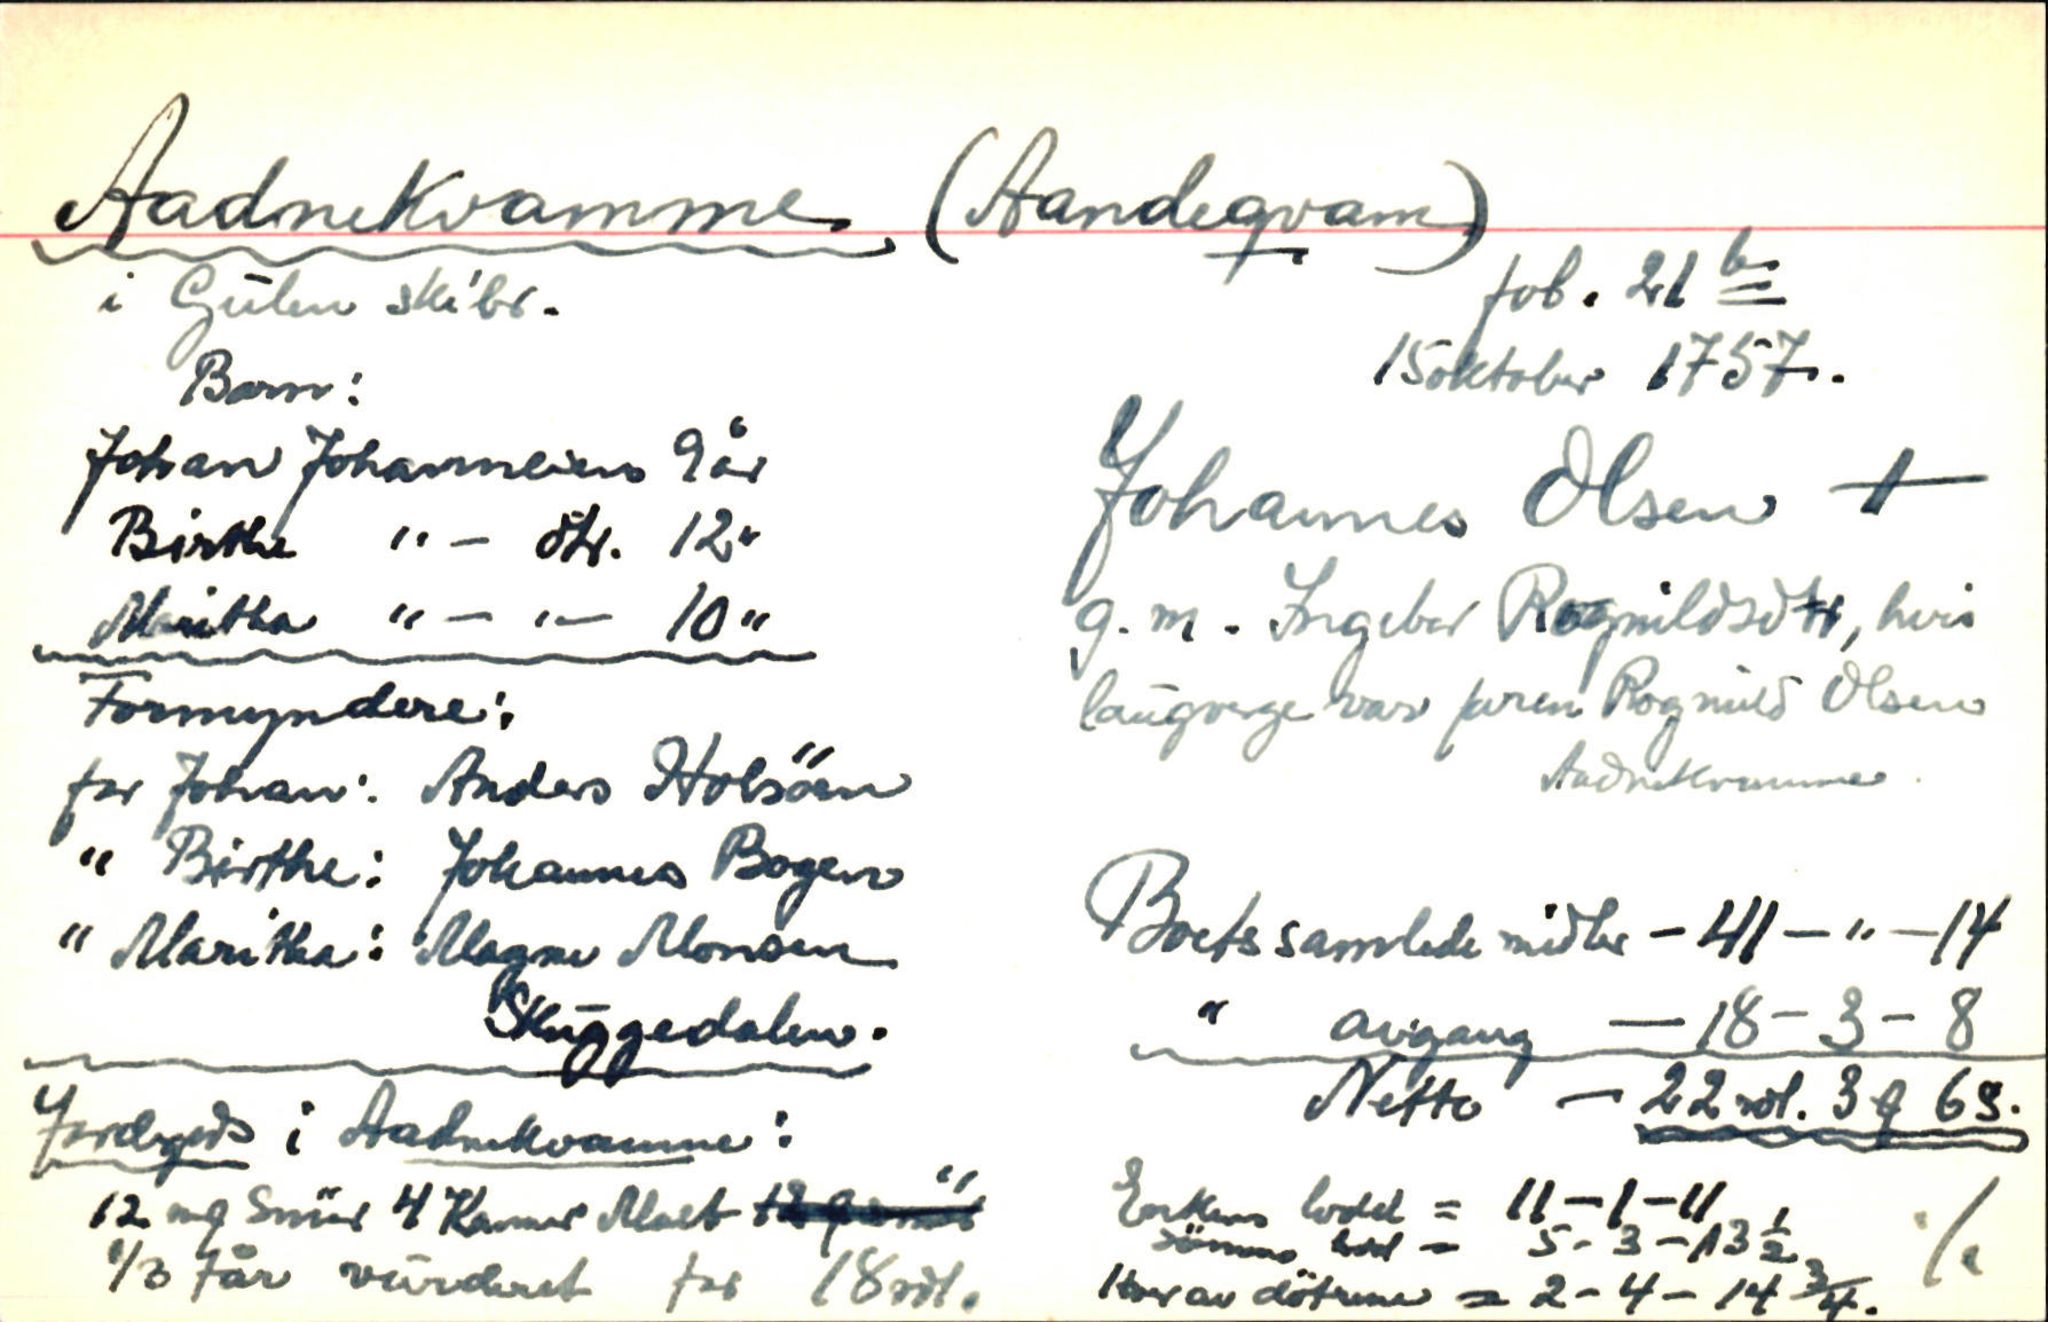 Aadnekvamme (Aandeqvam)
i Gulen skibr.
fol. 21 b
15 oktober 1757.
Barn:
Johan Johannessen 9 år
Birthe " — dtr. 12 "
Maritha " — " — 10 "
Formyndere:
for Johan: Anders Holsöen
" Birthe: Johannes Bogen
" Maritha: Magne Monsen
Skuggedalen.
Jordgods i Aadnekvamme:
12 mg Smör 4 Kanner Malt
1/3 får vurderet for 18 rdl.
Johannes Olsen †
g. m. Ingebor Rognildsdtr, hvis
laugverge var faren Rognild Olsen
Aadnekvamme.
Boets samlede midler — 41 — " — 14
" avgang — 18 — 3 — 8
Netto — 22 rdl. 3 q 6 s.
Enkens lodd = 11 — 1 — 11
Sönnens lod = 5 - 3 - 13 1/2
Hver av dötrene = 2 - 4 - 14 3/4.